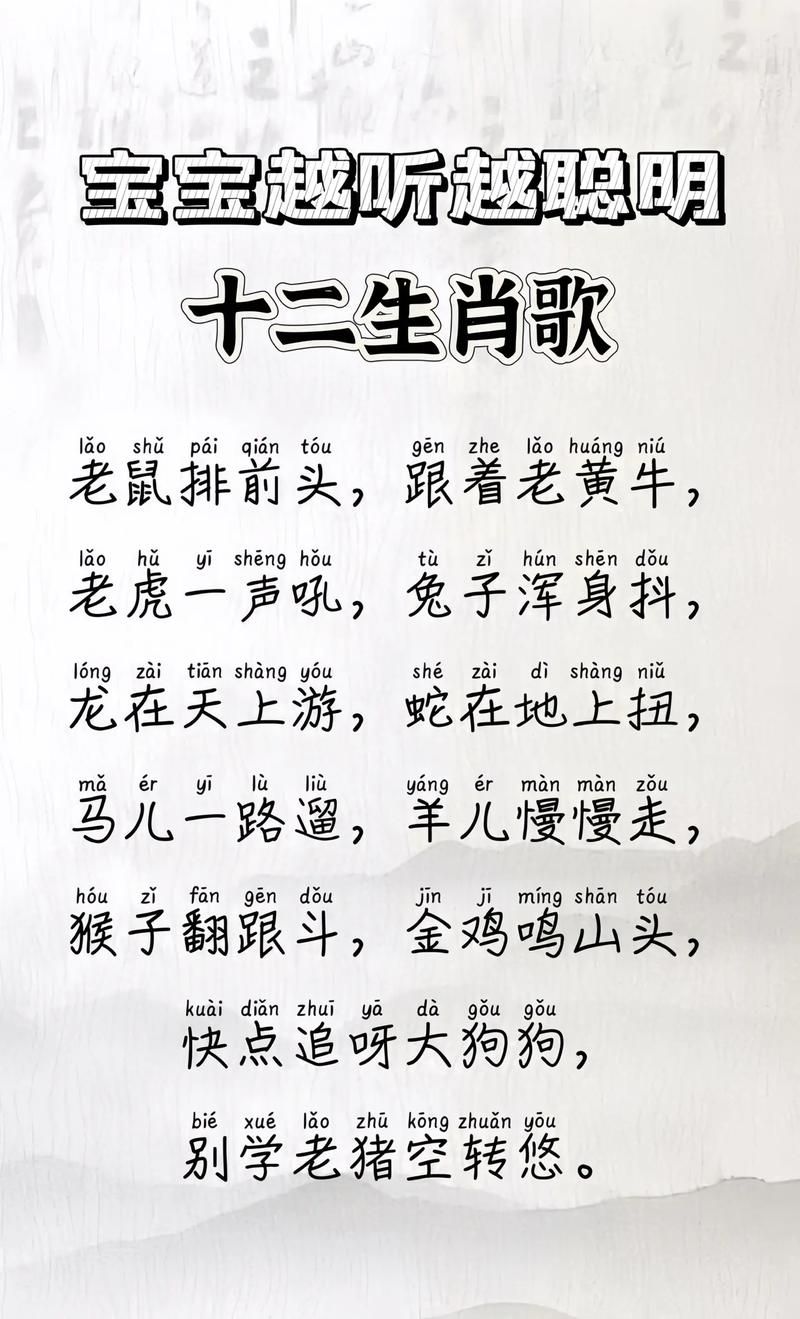 宝宝越听越聪明
十二生肖歌
lǎo shǔ pái qián tóu gēn zhe lǎo huáng niú
老鼠排前头，跟着老黄牛，
lǎo hǔ yī shēng hǒu tù zǐ hún shēn dǒu
老虎一声吼，兔子浑身抖，
lóng zài tiān shàng yóu shé zài dì shàng niǔ
龙在天上游，蛇在地上扭，
mǎ ér yī lù liù yáng ér màn màn zǒu
马儿一路遛，羊儿慢慢走，
hóu zǐ fān gēn dǒu jīn jī míng shān tóu
猴子翻跟斗，金鸡鸣山头，
kuài diǎn zhuī yā dà gǒu gǒu
快点追呀大狗狗，
bié xué lǎo zhū kōng zhuǎn yōu
别学老猪空转悠。